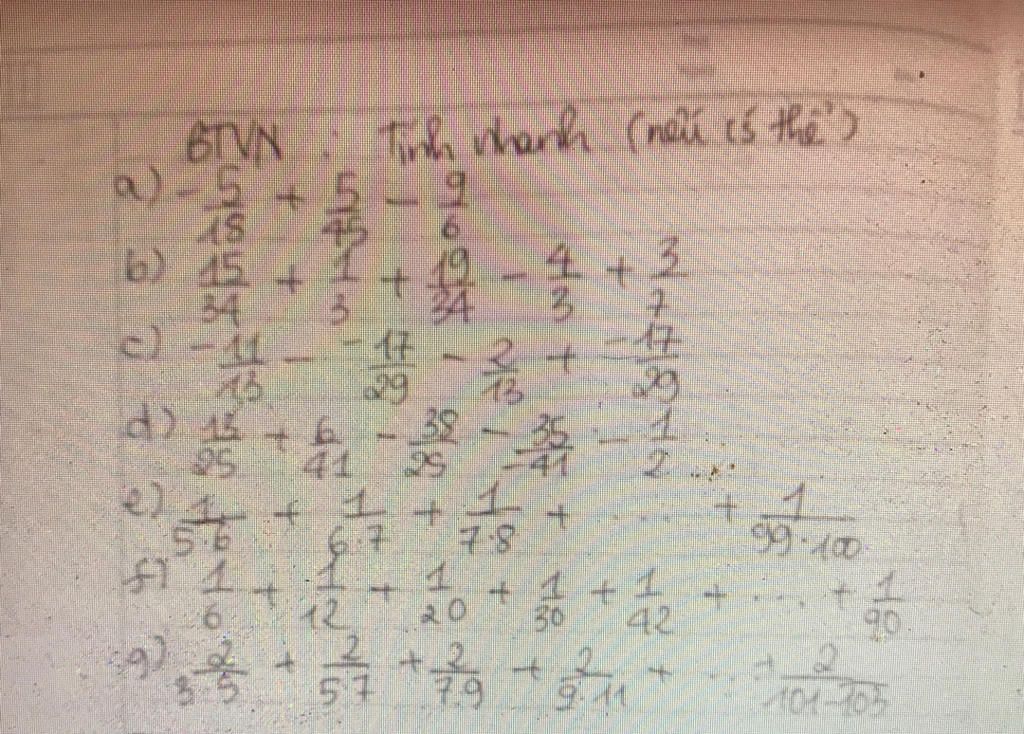 BTVN : Tính nhanh (nếu có thể)
a) -5/18 + 5/45 - 9/6
b) 15/34 + 1/3 + 19/34 - 4/3 + 3/7
c) -11/13 - -17/29 - 2/13 + -17/29
d) 13/25 + 6/41 - 38/25 - 35/-41 - 1/2
e) 1/5·6 + 1/6·7 + 1/7·8 + .... + 1/99·100
f) 1/6 + 1/12 + 1/20 + 1/30 + 1/42 + ... + 1/90
g) 2/3·5 + 2/5·7 + 2/7·9 + 2/9·11 + ... + 2/101·103